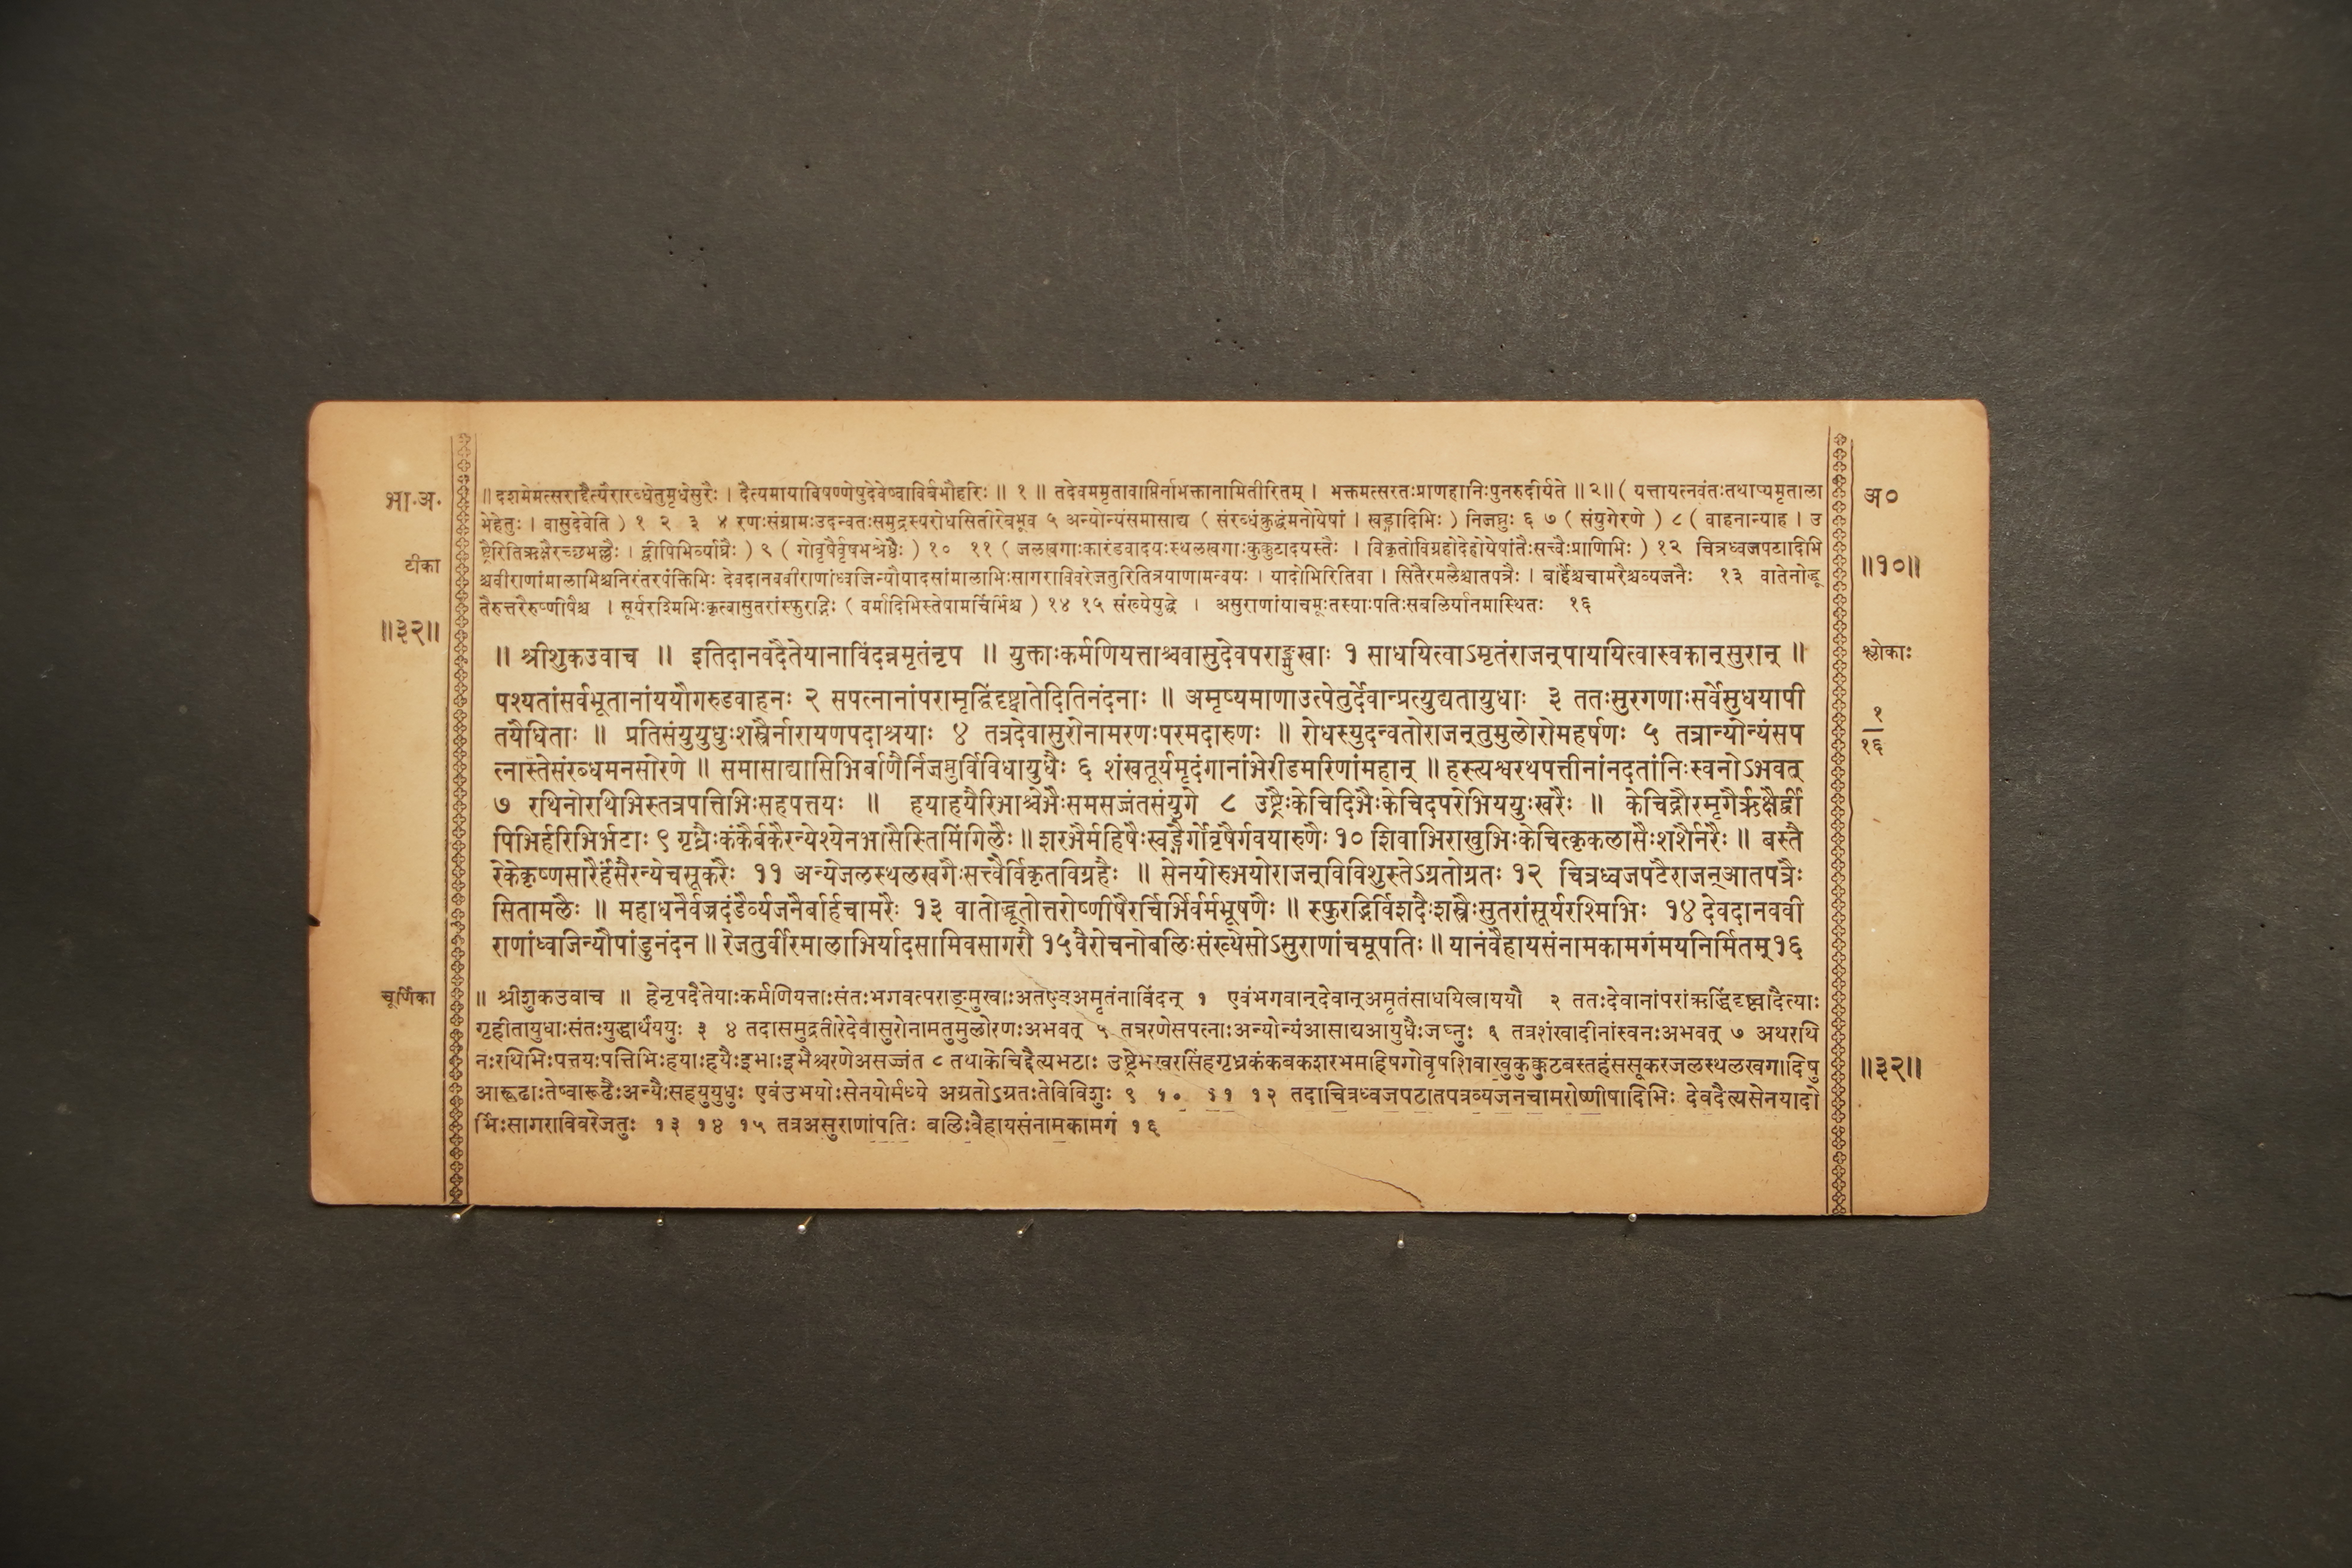 भा.अ.
टीका
॥३२॥
॥ दशमेमत्सराद्दैत्यैरारब्धेतुमृधेसुरैः । दैत्यमायाविषण्णेषुदेवेष्वाविर्बभौहरिः ॥ १ ॥ तदेवममृतावाप्तिर्नाभक्तानामितीरितम् । भक्तमत्सरतःप्राणहानिःपुनरुदीर्यते ॥२॥ ( यत्तायत्नवंतःतथाप्यमृताला
भेहेतुः । वासुदेवेति ) १ २ ३ ४ रणःसंग्रामःउदन्वतःसमुद्रस्यरोधसितीरेबभूव ५ अन्योन्यंसमासाद्य ( संरब्धंक्रुद्धंमनोयेषां । खड्गादिभिः ) निजघ्नुः ६ ७ ( संयुगेरणे ) ८ ( वाहनान्याह । उ
ष्ट्रैरितिऋक्षैरच्छभल्लैः । द्वीपिभिर्व्याघ्रैः ) ९ ( गोवृषैर्वृषभश्रेष्ठैः ) १० ११ ( जलखगाःकारंडवादयःस्थलखगाःकुक्कुटादयस्तैः । विकृतोविग्रहोदेहोयेषांतैःसत्त्वैःप्राणिभिः ) १२ चित्रध्वजपटादिभि
श्चवीराणांमालाभिश्चनिरंतरपंक्तिभिः देवदानववीराणांध्वजिन्यौयादसांमालाभिःसागराविवरेजतुरितित्रयाणामन्वयः । यादोभिरितिवा । सितैरमलैश्चातपत्रैः । बार्हैश्चचामरैश्चव्यजनैः १३ वातेनोद्धू
तैरुत्तरैरुष्णीषैश्च । सूर्यरश्मिभिःकृत्वासुतरांस्फुरद्भिः ( वर्मादिभिस्तेषामर्चिर्भिश्च ) १४ १५ संख्येयुद्धे । असुराणांयाचमूःतस्याःपतिःसबलिर्यानमास्थितः १६
॥ श्रीशुकउवाच ॥ इतिदानवदैतेयानाविंदन्नमृतंनृप ॥ युक्ताःकर्मणियत्ताश्चवासुदेवपराङ्मुखाः १ साधयित्वाऽमृतंराजन्पाययित्वास्वकान्सुरान् ॥
पश्यतांसर्वभूतानांययौगरुडवाहनः २ सपत्नानांपरामृद्धिंदृष्ट्वातेदितिनंदनाः ॥ अमृष्यमाणाउत्पेतुर्देवान्प्रत्युद्यतायुधाः ३ ततःसुरगणाःसर्वेसुधयापी
तयैधिताः ॥ प्रतिसंयुयुधुःशस्त्रैर्नारायणपदाश्रयाः ४ तत्रदेवासुरोनामरणःपरमदारुणः ॥ रोधस्युदन्वतोराजन्तुमुलोरोमहर्षणः ५ तत्रान्योन्यंसप
त्नास्तेसंरब्धमनसोरणे ॥ समासाद्यासिभिर्बाणैर्निजघ्नुर्विविधायुधैः ६ शंखतूर्यमृदंगानांभेरीडमरिणांमहान् ॥ हस्त्यश्वरथपत्तीनांनदतांनिःस्वनोऽभवत्
७ रथिनोरथिभिस्तत्रपत्तिभिःसहपत्तयः ॥ हयाहयैरिभाश्चेभैःसमसज्जंतसंयुगे ८ उष्ट्रैःकेचिदिभैःकेचिदपरोभिययुःखरैः ॥ केचिद्गौरमृगैर्ऋक्षैर्द्वी
पिभिर्हरिभिर्भटाः ९ गृध्रैःकंकैर्बकैरन्येश्येनभासैस्तिमिंगिलैः ॥ शरभैर्महिषैःखड्गैर्गोवृषैर्गवयारुणैः १० शिवाभिराखुभिःकेचित्कृकलासैःशशैर्नरैः ॥ बस्तै
रेकेकृष्णसारैर्हंसैरन्येचसूकरैः ११ अन्येजलस्थलखगैःसत्त्वैर्विकृतविग्रहैः ॥ सेनयोरुभयोराजन्विविशुस्तेऽग्रतोग्रतः १२ चित्रध्वजपटैराजन्आतपत्रैः
सितामलैः ॥ महाधनैर्वज्रदंडैर्व्यजनैर्बार्हचामरैः १३ वातोद्धूतोत्तरोष्णीषैरर्चिर्भिर्वर्मभूषणैः ॥ स्फुरद्भिर्विशदैःशस्त्रैःसुतरांसूर्यरश्मिभिः १४ देवदानववी
राणांध्वजिन्यौपांडुनंदन ॥ रेजतुर्वीरमालाभिर्यादसामिवसागरौ १५ वैरोचनोबलिःसंख्येसोऽसुराणांचमूपतिः ॥ यानंवैहायसंनामकामगंमयनिर्मितम् १६
चूर्णिका
॥ श्रीशुकउवाच ॥ हेनृपदैतेयाःकर्मणियत्ताःसंतःभगवत्पराङ्मुखाःअतएवअमृतंनाविंदन् १ एवंभगवान्देवान्अमृतंसाधयित्वाययौ २ ततःदेवानांपरांऋद्धिंदृष्ट्वादैत्याः
गृहीतायुधाःसंतःयुद्धार्थंययुः ३ ४ तदासमुद्रतीरेदेवासुरोनामतुमुलोरणःअभवत् ५ तत्ररणेसपत्नाःअन्योन्यंआसाद्यआयुधैःजघ्नुः ६ तत्रशंखादीनांस्वनःअभवत् ७ अथरथि
नःरथिभिःपत्तयःपत्तिभिःहयाःहयैःइभाःइभैश्चरणेअसज्जंत ८ तथाकेचिद्दैत्यभटाः उष्ट्रेभखरसिंहगृध्रकंकबकशरभमाहिषगोवृषशिवाखुकुक्कुटबस्तहंससूकरजलस्थलखगादिषु
आरूढाःतेष्वारूढैःअन्यैःसहयुयुधुः एवंउभयोःसेनयोर्मध्ये अग्रतोऽग्रतःतेविविशुः ९ १० ११ १२ तदाचित्रध्वजपटातपत्रव्यजनचामरोष्णीषादिभिः देवदैत्यसेनयादो
भिःसागराविवरेजतुः १३ १४ १५ तत्रअसुराणांपतिः बलिःवैहायसंनामकामगं १६
अ०
॥१०॥
श्लोकाः
१
१६
॥३२॥